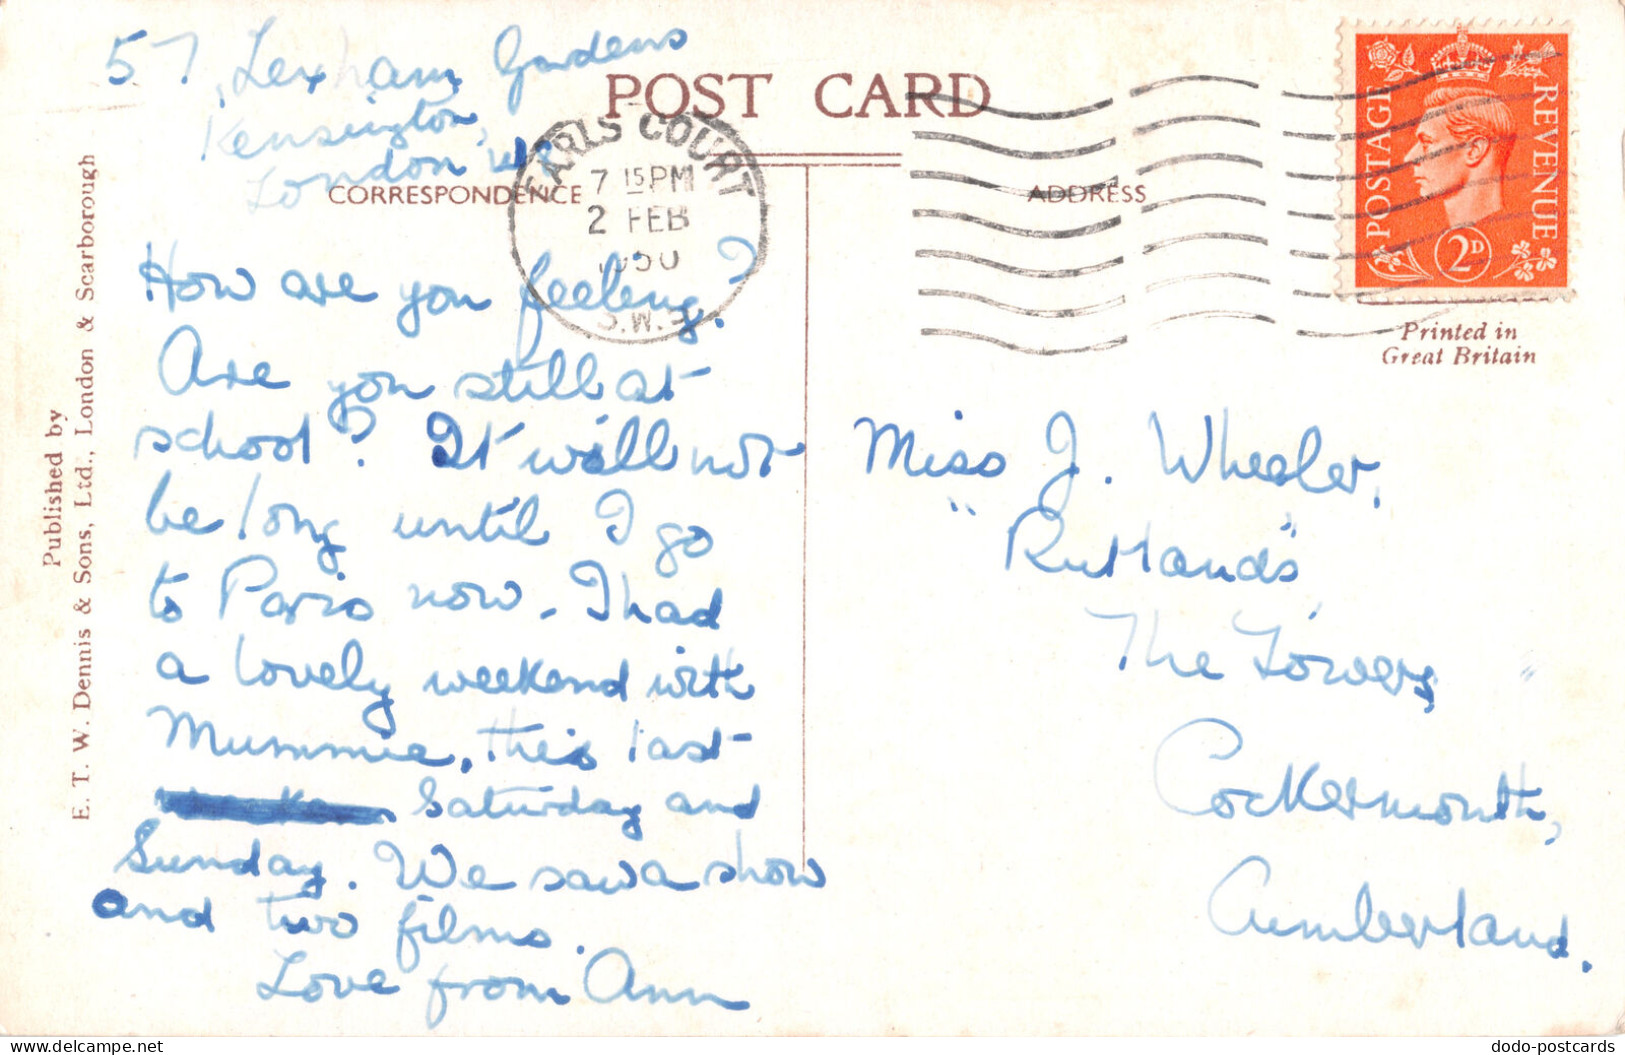 57, Lexham Gardens
Kensington,
London W8
POST CARD
CORRESPONDENCE
ADDRESS
EARLS COURT
7 15 PM
2 FEB
1950
S.W.5
POSTAGE REVENUE
2D
Printed in
Great Britain
Published by
E. T. W. Dennis & Sons, Ltd., London & Scarborough
How are you feeling?
Are you still at
school? It will not
be long until I go
to Paris now. I had
a lovely weekend with
Mummie, this last
Saturday and
Sunday. We saw a show
and two films.
Love from Ann
Miss J. Wheeler,
"Rutlands",
The Towers,
Cockermouth,
Cumberland.
dodo-postcards